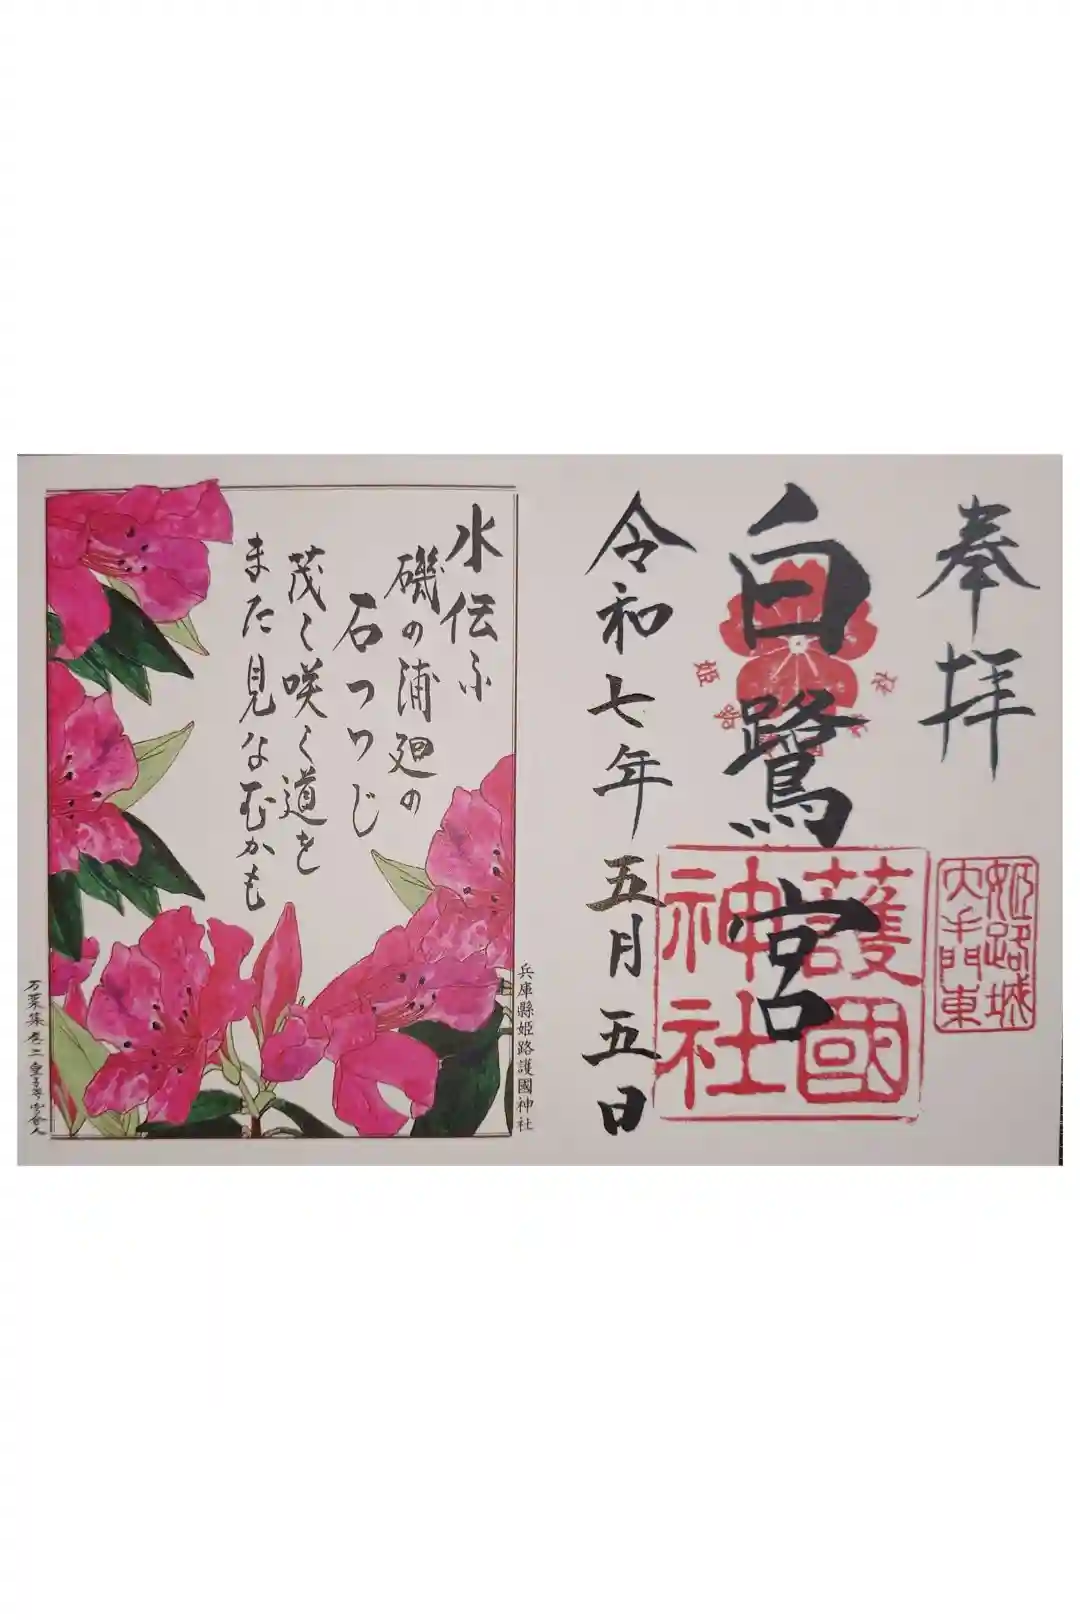 奉拝
白鷺宮
令和七年五月五日
姫路城
大手門東
護國
神社
水伝ふ
磯の浦廻の
石つつじ
茂く咲く道を
また見なむかも
兵庫縣姫路護國神社
万葉集巻二皇子尊宮舎人